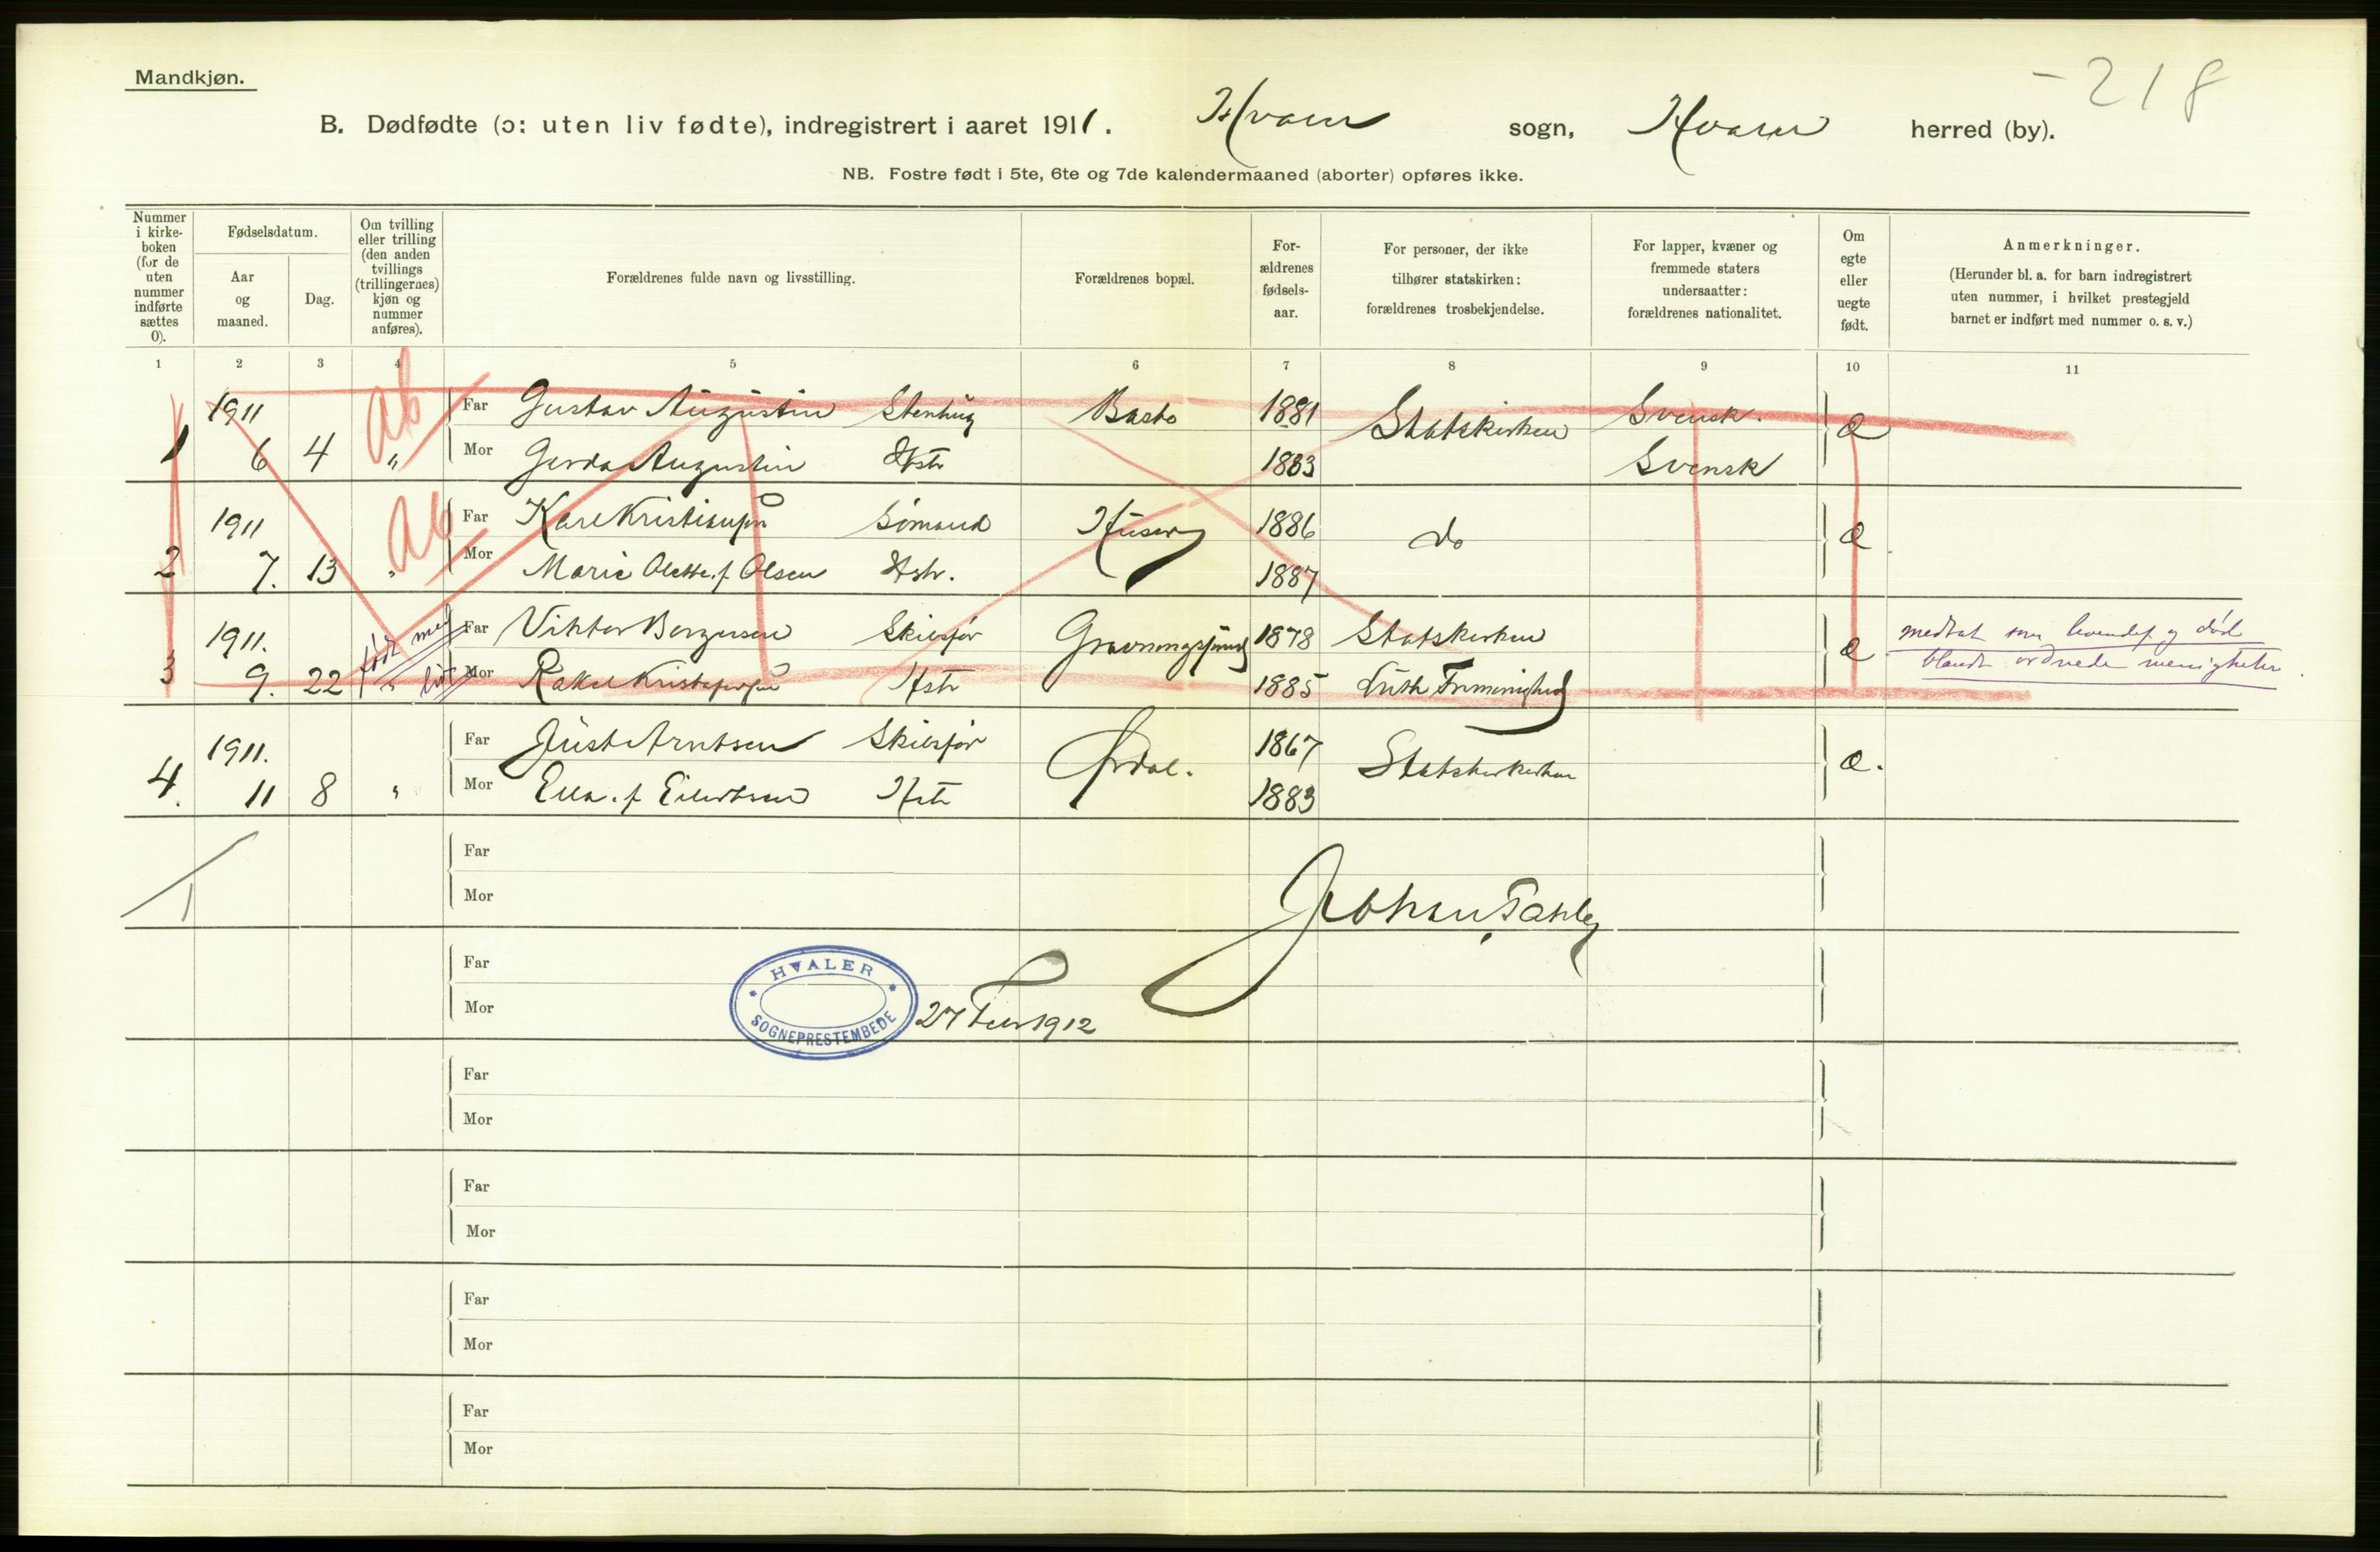 Mandkjøn.
-218
B. Dødfødte (ɔ: uten liv fødte), indregistrert i aaret 1911. Hvaler sogn, Hvaler herred (by).
NB. Fostre født i 5te, 6te og 7de kalendermaaned (aborter) opføres ikke.
Nummer i kirke-boken (for de uten nummer indførte sættes 0).
Fødselsdatum.
Aar og maaned.
Dag.
Om tvilling eller trilling (den anden tvillings (trillingernes) kjøn og nummer anføres).
Forældrenes fulde navn og livsstilling.
Forældrenes bopæl.
For-ældrenes fødsels-aar.
For personer, der ikke tilhører statskirken: forældrenes trosbekjendelse.
For lapper, kvæner og fremmede staters undersaatter: forældrenes nationalitet.
Om egte eller uegte født.
Anmerkninger.
(Herunder bl. a. for barn indregistrert uten nummer, i hvilket prestegjeld barnet er indført med nummer o. s. v.)
1 2 3 4 5 6 7 8 9 10 11
1911 ab Far Gustav Augustin Stenhug Basto 1881 Statskirken Svensk. e
1 6 4 " Mor Gerda Augustin Hstr 1883 Svensk
1911 ab Far Karl Kristiansen Sømand Huser 1886 do e
2 7. 13 " Mor Marie Olette f. Olsen Hstr. 1887
1911. født med Far Viktor Børgesen Skibsfør 1878 Statskirken e medtat som levendef og død
3 9. 22 " liv Mor Rakel Kristofersen Hstr 1885 Luth Frimenighed blandt ordnede menigheter
1911. Far Just Arntsen Skibsfør Ørdal. 1867 Statskirken e.
4. 11 8 " Mor Ella. f Eilertsen Hstr 1883
Far
Mor
Far
HVALER
SOGNEPRESTEMBEDE
27 Febr 1912
Mor
Far
Mor
Far
Mor
Far
Mor
Far
Mor